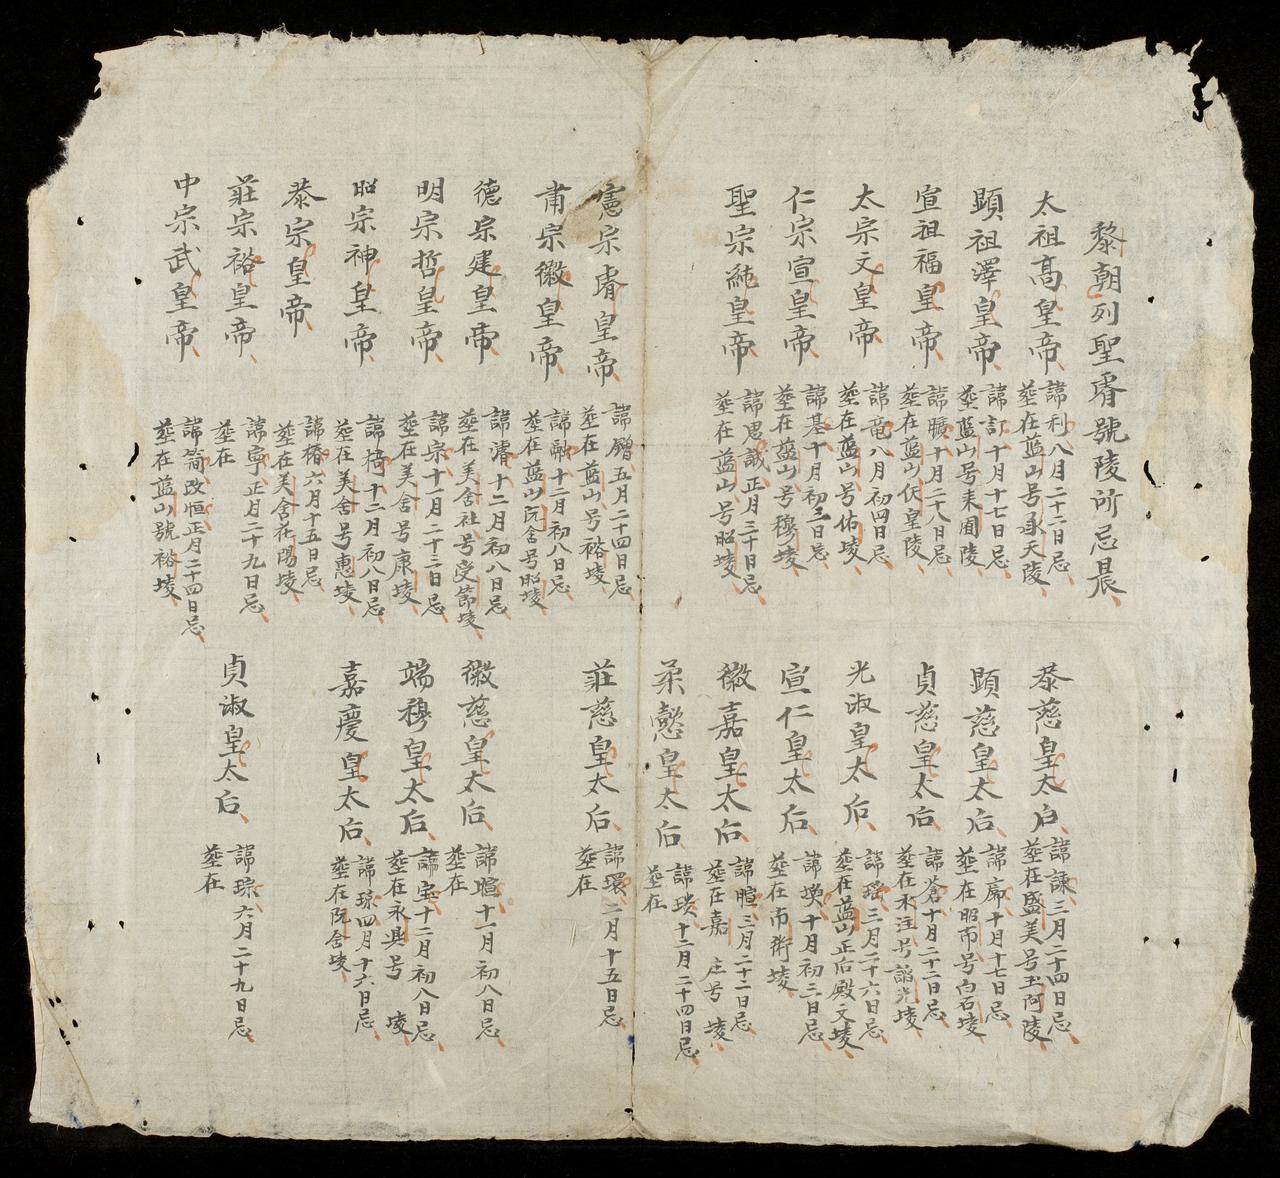 黎朝列聖睿號陵所忌晨
太祖高皇帝
諱利八月二十二日忌
塟在藍山号永天陵
泰慈皇太后
諱諫三月二十四日忌
塟在盛美号玉阿陵
顕祖澤皇帝
諱訂十月十七日忌
塟藍山号来圃陵
顕慈皇太后
諱席十月十七日忌
塟在昭市号白石堎
宣祖福皇帝
諱曠十月二十八日忌
塟在藍山伏皇陵
貞慈皇太后
諱蒼十月二十二日忌
塟在永注号韶光堎
太宗文皇帝
諱竜八月初四日忌
塟在藍山号佑堎
光淑皇太后
諱瑶三月二十六日忌
塟在藍山正后殿文堎
仁宗宣皇帝
諱基十月初三日忌
塟在藍山号穆堎
宣仁皇太后
諱煥十月初三日忌
塟在市街堎
聖宗純皇帝
諱思誠正月三十日忌
塟在藍山号昭堎
徽嘉皇太后
諱暄三月二十二日忌
塟在嘉 庄号 堎
柔懿皇太后
諱璜十二月二十四日忌
塟在
憲宗睿皇帝
諱鏳五月二十四日忌
塟在藍山号裕堎
莊慈皇太后
諱環二月十五日忌
塟在
肅宗徽皇帝
諱㵮十二月初八日忌
塟在藍山阮舍号昭堎
德宗建皇帝
諱濬十二月初八日忌
塟在美舍社号安節堎
徽慈皇太后
諱暄十一月初八日忌
塟在
明宗哲皇帝
諱宗十一月二十三日忌
塟在美舍号康堎
端穆皇太后
諱宝十二月初八日忌
塟在永興号 堎
昭宗神皇帝
諱椅十二月初八日忌
塟在美舍号惠堎
嘉慶皇太后
諱琼四月十六日忌
塟在阮舍堎
恭宗皇帝
諱椿六月十五日忌
塟在美舍花陽堎
莊宗裕皇帝
諱寧正月二十九日忌
塟在
貞淑皇太后
諱琮六月二十九日忌
塟在
中宗武皇帝
諱簡改恒正月二十四日忌
塟在藍山號裕堎